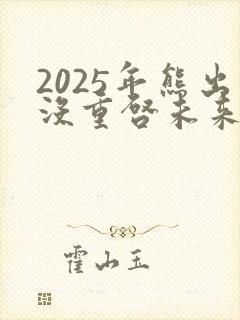 2025年熊出
没重启未来
霍山玉